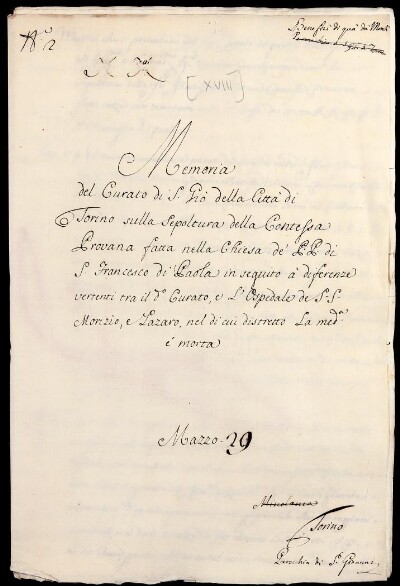 N.º 2
Benefizi di quà da Monti
[XVIII]
Memoria
del Curato di S. Gio della Città di
Torino sulla Sepoltura della Contessa
Provana fatta nella Chiesa de' P.P. di
S. Francesco di Paola in seguito à diferenze
vertenti tra il dº Curato, e L'Ospedale de S.S.
Morizio, e Lazaro, nel di cui distretto La medª
è morta
Mazzo 29
Torino
Parochia di S. Giovanni